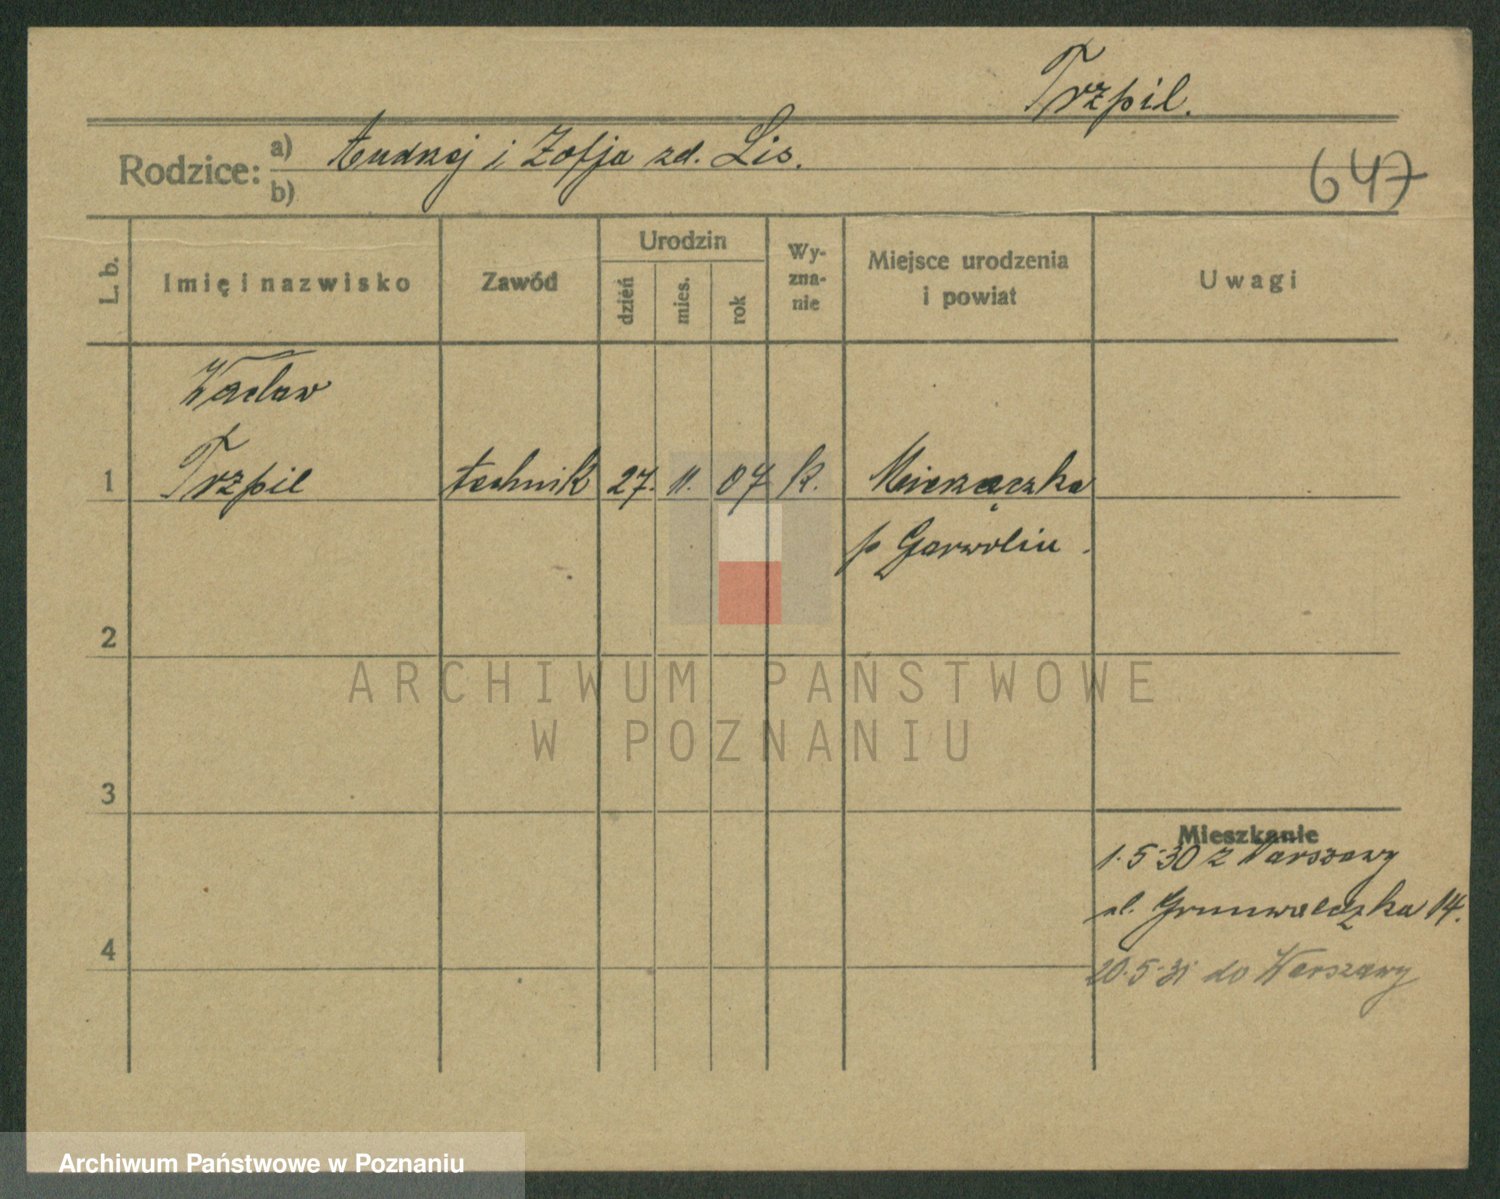 Trzpil.
Rodzice: a) Andrzej i Zofja zd. Lis.
b)
647
L. b.
Imię i nazwisko
Zawód
Urodzin
dzień
mies.
rok
Wy-
zna-
nie
Miejsce urodzenia
i powiat
Uwagi
Wacław
1 Trzpil technik 27. 11. 07 k. Mierzączka
p Garwolin.
2
3
4
Mieszkanie
1.5.30 z Warszawy
ul. Grunwaldzka 14.
20.5.31 do Warszawy
ARCHIWUM PAŃSTWOWE
W POZNANIU
Archiwum Państwowe w Poznaniu